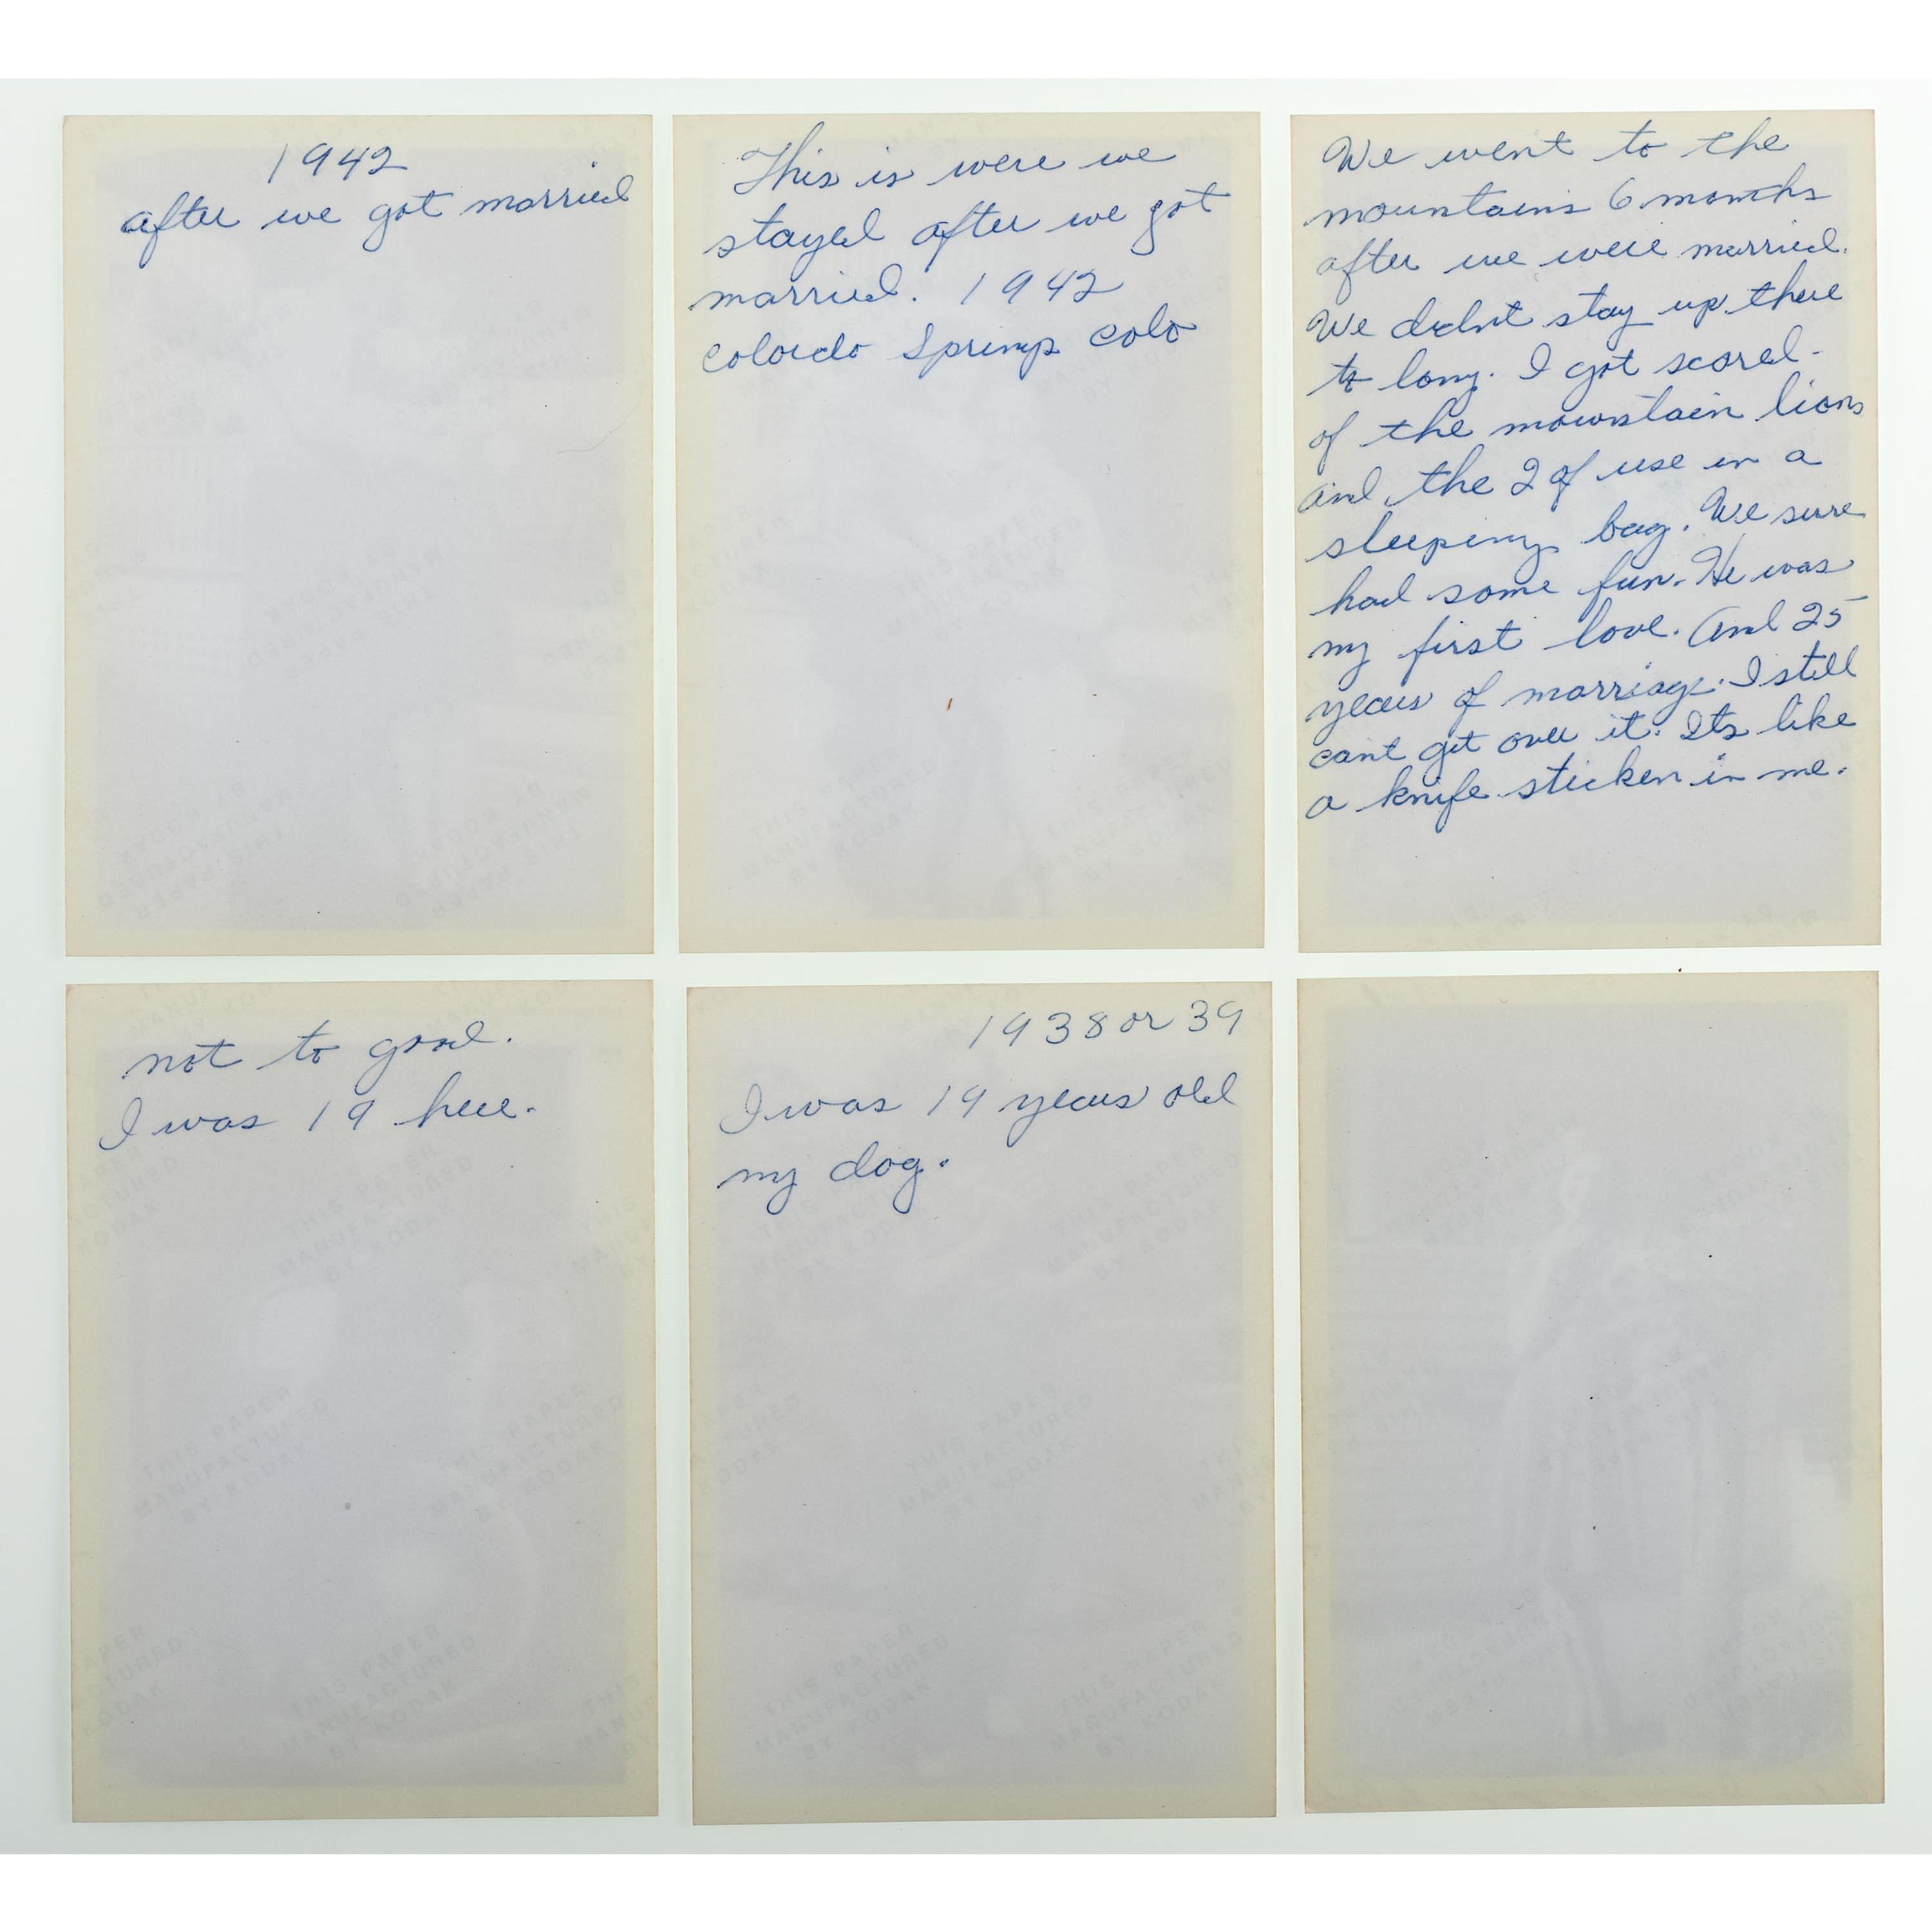 1942
after we got married
This is were we
stayed after we got
married. 1942
Colordo Springs Colo
We went to the
mountains 6 months
after we were married.
We didnt stay up there
to long. I got scared.
of the mountain lions
and the 2 of use in a
sleeping bag. We sure
had some fun. He was
my first love. And 25
years of marriage. I still
cant get over it. Its like
a knife sticken in me.
not to good.
I was 19 here.
THIS PAPER
MANUFACTURED
BY KODAK
1938 or 39
I was 19 years old
my dog.
THIS PAPER
MANUFACTURED
BY KODAK